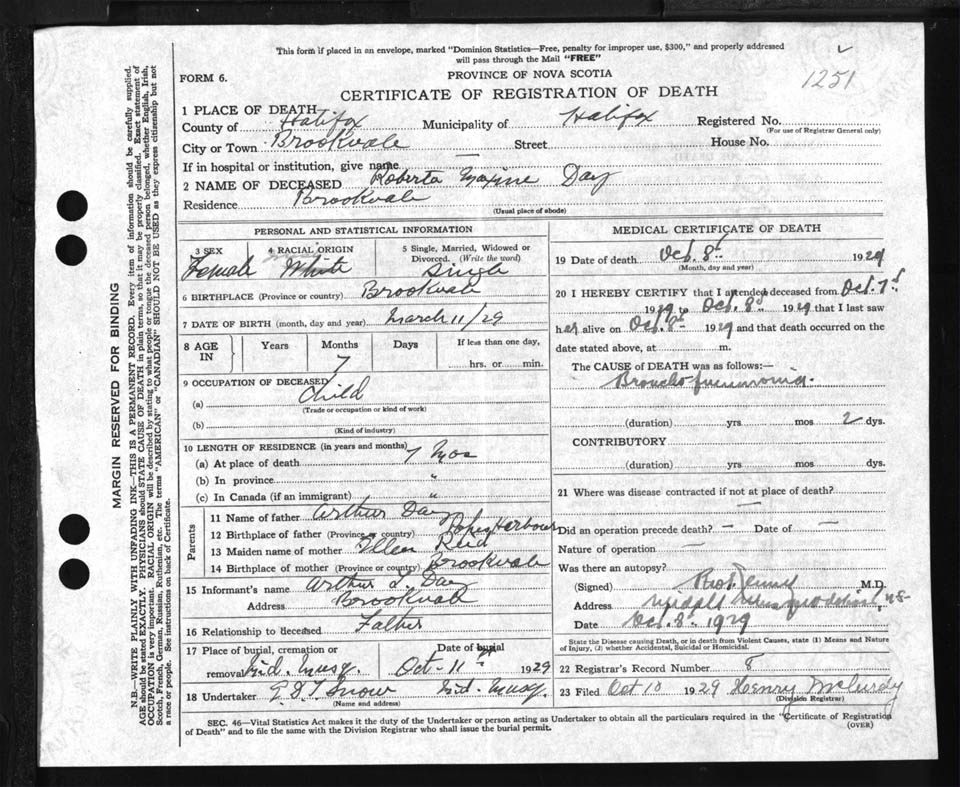 This form if placed in an envelope, marked "Dominion Statistics—Free, penalty for improper use, $300," and properly addressed
will pass through the Mail "FREE"
1251
FORM 6.
PROVINCE OF NOVA SCOTIA
CERTIFICATE OF REGISTRATION OF DEATH
1 PLACE OF DEATH—
County of Halifax Municipality of Halifax Registered No.
(For use of Registrar General only)
City or Town Brookvale Street House No.
If in hospital or institution, give name
2 NAME OF DECEASED Roberta Maxine Day
Residence Brookvale
(Usual place of abode)
PERSONAL AND STATISTICAL INFORMATION
3 SEX 4 RACIAL ORIGIN 5 Single, Married, Widowed or
Divorced. (Write the word)
Female White Single
6 BIRTHPLACE (Province or country) Brookvale
7 DATE OF BIRTH (month, day and year) March 11/29
8 AGE IN Years Months Days If less than one day,
7 hrs. or min.
9 OCCUPATION OF DECEASED
(a) Child
(Trade or occupation or kind of work)
(b)
(Kind of industry)
10 LENGTH OF RESIDENCE (in years and months)
(a) At place of death 7 Mos
(b) In province "
(c) In Canada (if an immigrant) "
Parents
11 Name of father Arthur Day
12 Birthplace of father (Province or country) Popes Harbour
13 Maiden name of mother Ellen Reid
14 Birthplace of mother (Province or country) Brookvale
15 Informant's name Arthur L. Day
Address Brookvale
16 Relationship to deceased Father
17 Place of burial, cremation or Date of burial
removal Mid. Musq. Oct-11th 1929
18 Undertaker Snow Mid. Musq.
(Name and address)
MEDICAL CERTIFICATE OF DEATH
19 Date of death Oct. 8th 1929
(Month, day and year)
20 I HEREBY CERTIFY that I attended deceased from Oct. 7th
1929 to Oct. 8th 1929 that I last saw
her alive on Oct. 8th 1929 and that death occurred on the
date stated above, at m.
The CAUSE OF DEATH was as follows:—
Broncho pneumonia.
(duration) yrs mos 2 dys.
CONTRIBUTORY
(duration) yrs mos dys.
21 Where was disease contracted if not at place of death?
—
Did an operation precede death? — Date of —
Nature of operation —
Was there an autopsy?
(Signed) M.D.
Address Middle Musquodoboit, NS
Date Oct. 8th 1929
State the Disease causing Death, or in death from Violent Causes, state (1) Means and Nature
of Injury, (2) whether Accidental, Suicidal or Homicidal.
22 Registrar's Record Number 8
23 Filed Oct 10 1929 Henry McCurdy
(Division Registrar)
SEC. 46—Vital Statistics Act makes it the duty of the Undertaker or person acting as Undertaker to obtain all the particulars required in the "Certificate of Registration
of Death" and to file the same with the Division Registrar who shall issue the burial permit.
(OVER)
MARGIN RESERVED FOR BINDING
N.B.—WRITE PLAINLY WITH UNFADING INK—THIS IS A PERMANENT RECORD. Every item of information should be carefully supplied.
AGE should be stated EXACTLY. PHYSICIANS should STATE CAUSE OF DEATH in plain terms, so that it may be properly classified. Exact statement of
OCCUPATION is very important. RACIAL ORIGIN will be described by stating to what people or tongue the deceased person belonged, whether English, Irish,
Scotch, French, German, Russian, Ruthenian, etc. The terms "AMERICAN" or "CANADIAN" SHOULD NOT BE USED as they express citizenship but not
a race or people. See instructions on back of Certificate.